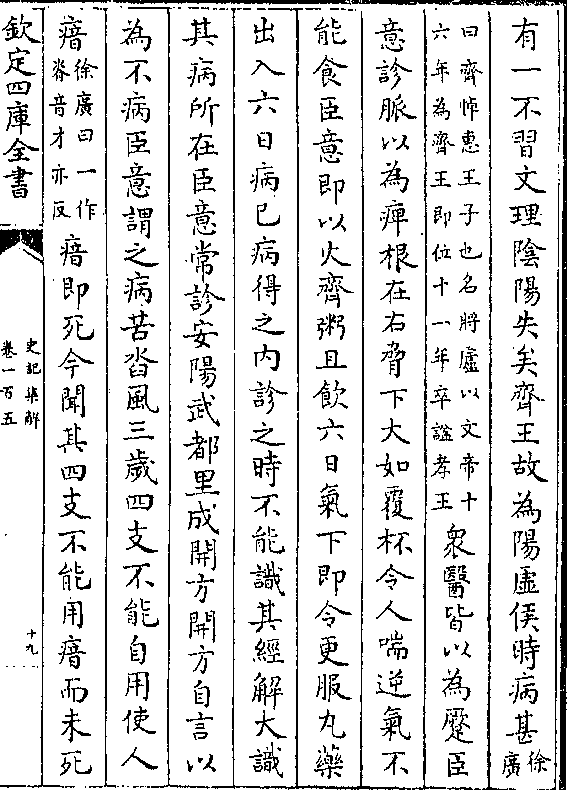 有一不習文理陰陽失矣齊王故為陽虛侯時病甚徐廣
曰齊悼惠王子也名將廬以文帝十六年為齊王即位十一年卒謚孝王衆醫皆以為蹷臣
意診脈以為痺根在右脅下大如覆杯令人喘逆氣不
能食臣意即以火齊粥且飲六日氣下即令更服丸藥
出入六日病已病得之内診之時不能識其經解大識
其病所在臣意常診安陽武都里成開方開方自言以
為不病臣意謂之病苦沓風三歲四支不能自用使人
瘖徐廣曰一作㾊音才亦反瘖即死今聞其四支不能用瘖而未死
欽定四庫全書
史記集解
卷一百五
十九